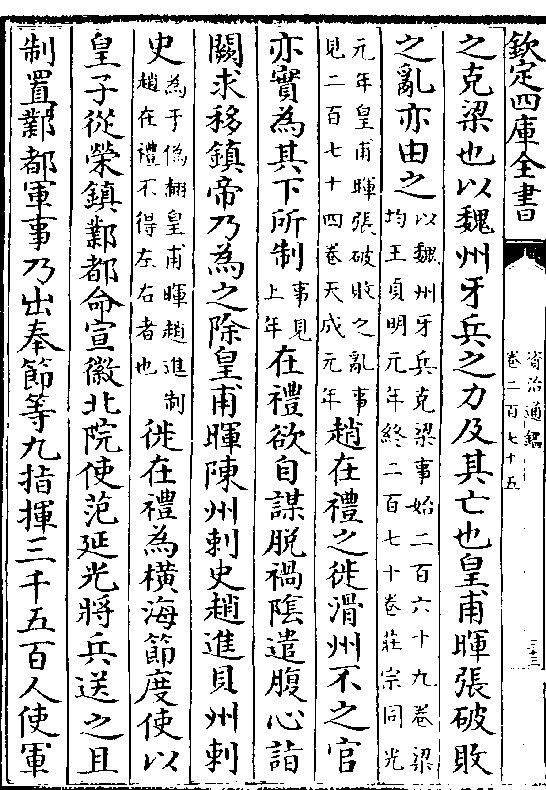 欽定四庫全書
資治通鑑
卷二百七十五
三十三
之克梁也以魏州牙兵之力及其亡也皇甫暉張破敗
之亂亦由之以魏州牙兵克梁事始二百六十九卷梁均王貞明元年終二百七十卷莊宗同光
元年皇甫暉張破敗之亂事見二百七十四卷天成元年趙在禮之徙滑州不之官
亦實為其下所制事見上年在禮欲自謀脫禍陰遣腹心詣
闕求移鎮帝乃為之除皇甫暉陳州刺史趙進貝州刺
史為于偽翻皇甫暉趙進制趙在禮不得左右者也徙在禮為橫海節度使以
皇子從榮鎮鄴都命宣徽北院使范延光將兵送之且
制置鄴都軍事乃出奉節等九指揮三千五百人使軍